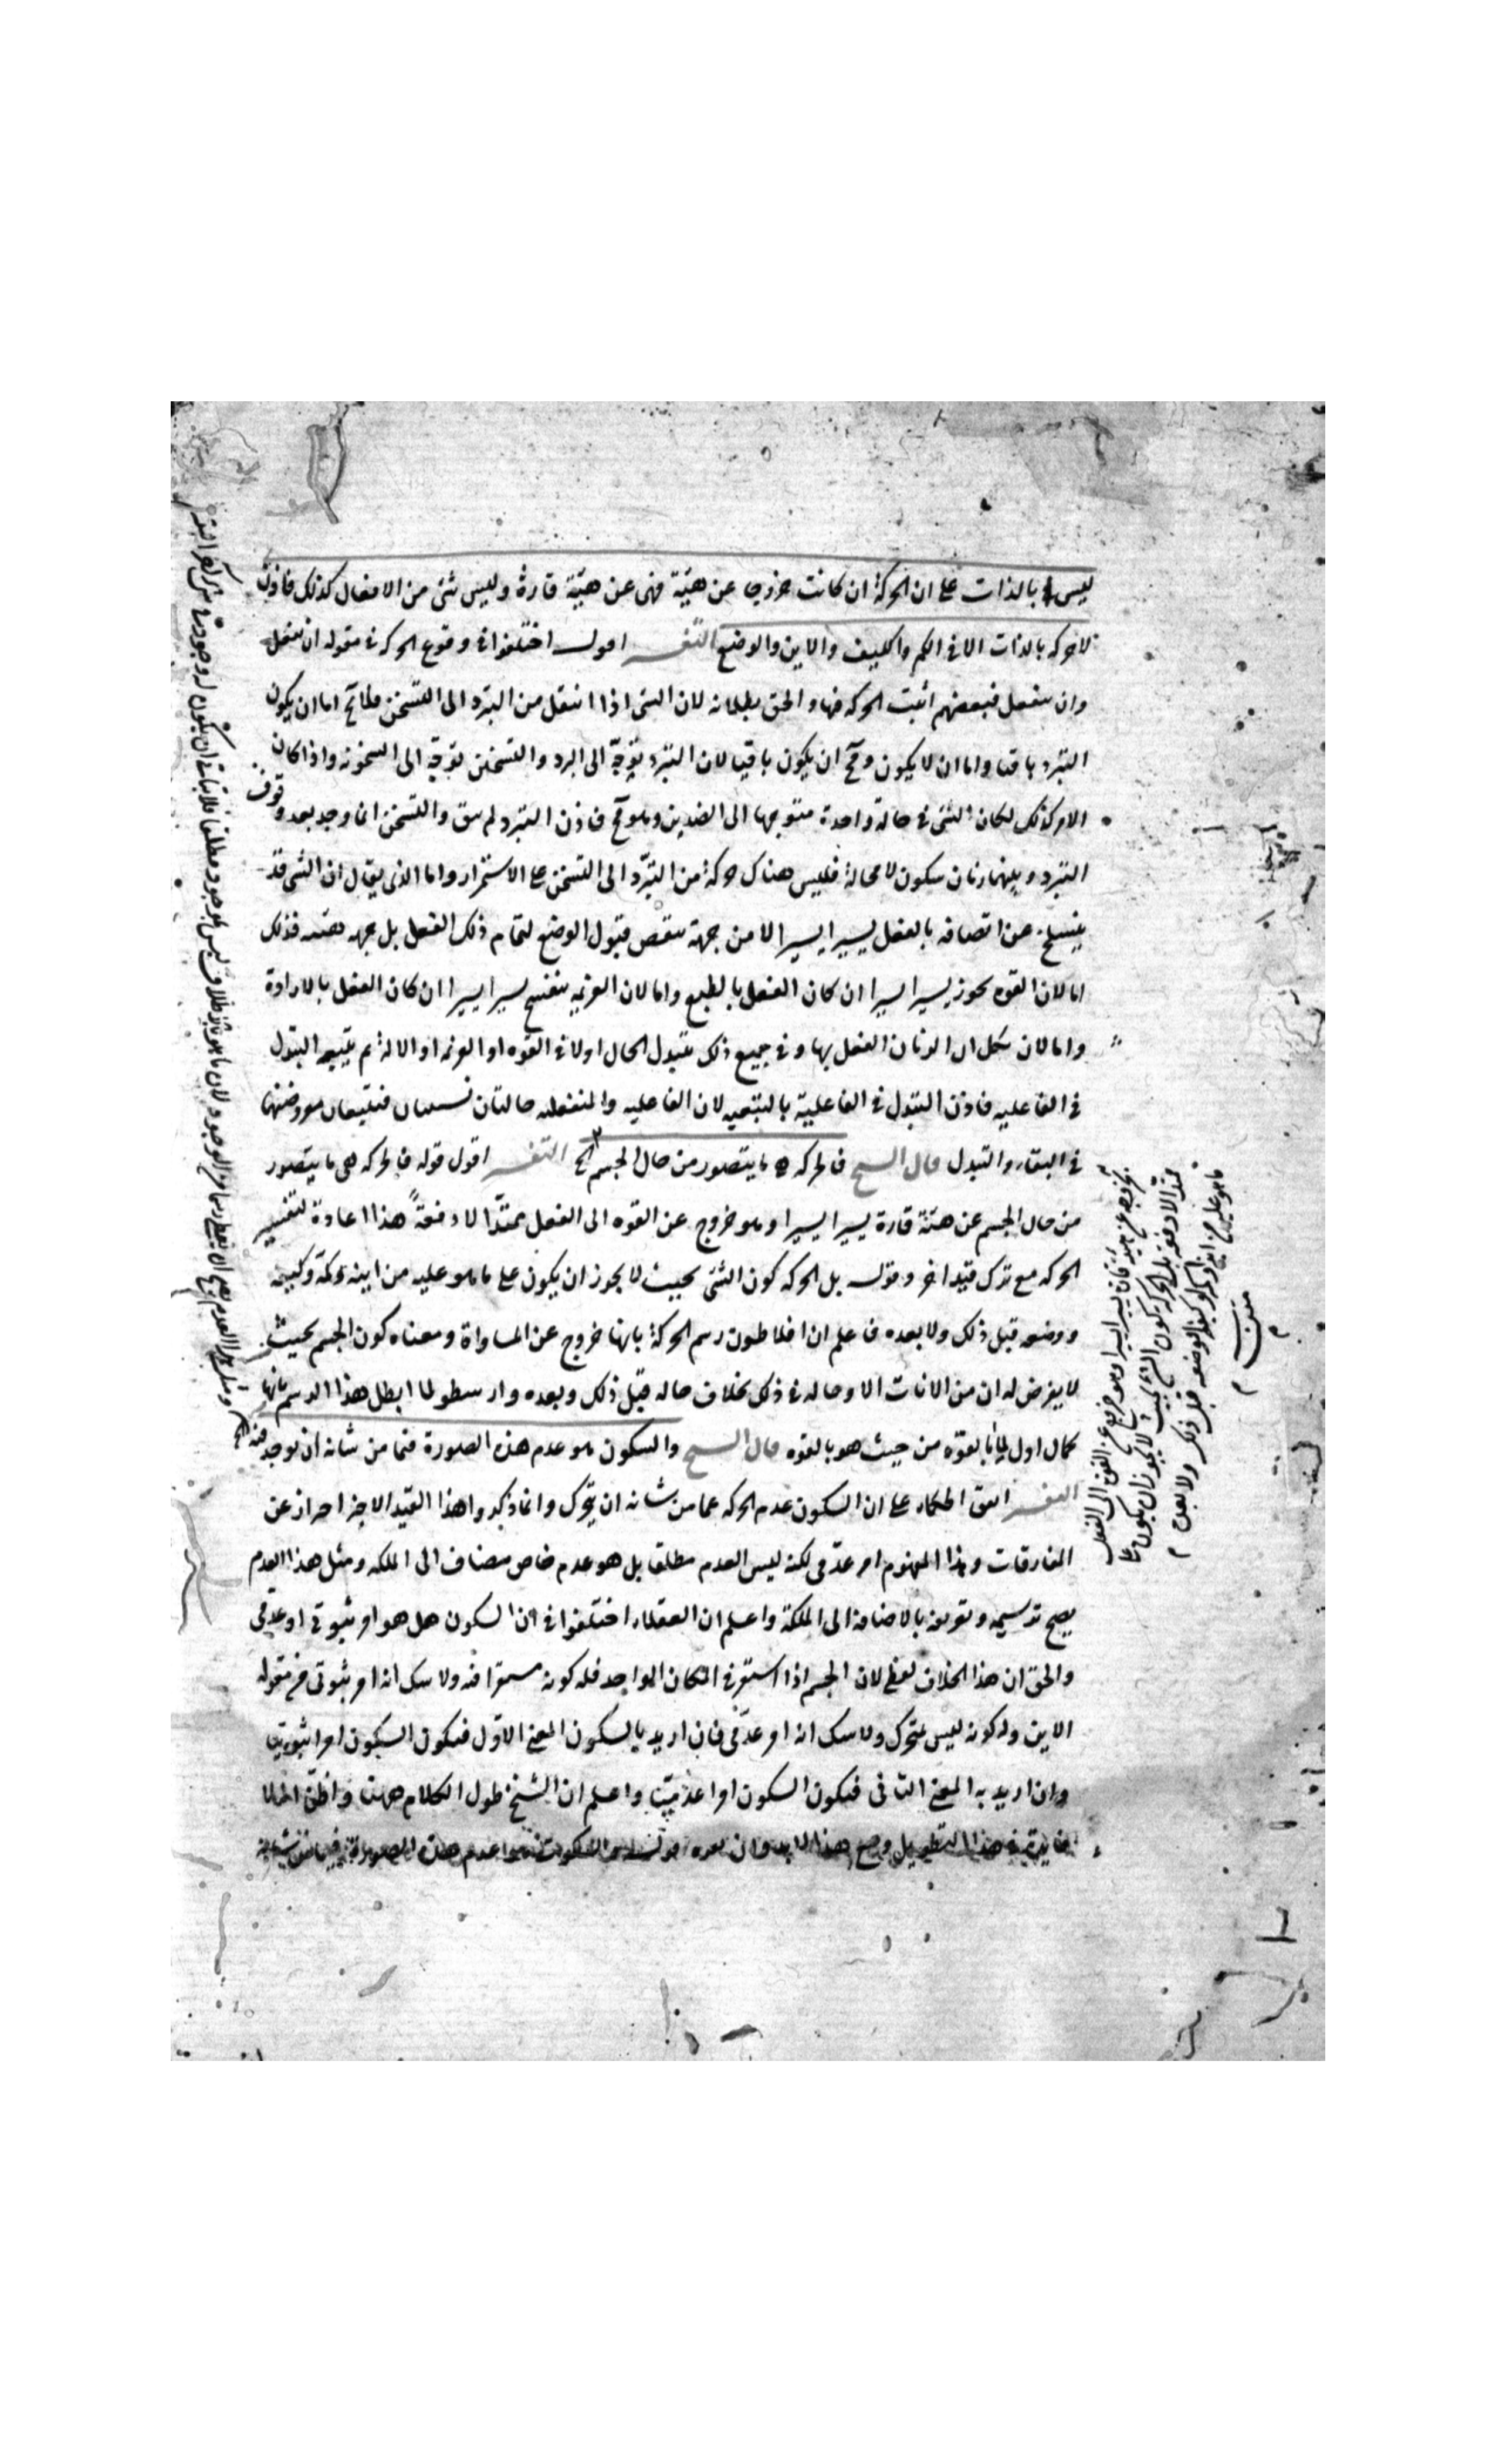 ليس بالذات على ان الحركة ان كانت خروجا عن هيئة فهى عن هيئة قارة وليس شئ من الافعال كذلك فاذن
لا حركة بالذات الا فى الكم والكيف والاين والوضع التفسير اقول اختلفوا فى وقوع الحركة فى مقولة ان يفعل
وان ينفعل فبعضهم اثبت الحركة فيها والحق بطلانه لان الشئ اذا انتقل من التبرد الى التسخن فلا يخ اما ان يكون
التبرد باقيا واما ان لا يكون ومح ان يكون باقيا لان التبرد توجّه الى البرد والتسخن توجّه الى السخونة واذا كان
الامر كذلك لكان الشئ فى حالة واحدة متوجها الى الضدين وهو مح فاذن التبرد لم يبق والتسخن انما وجد بعد وقوف
التبرد وبينهما زمان سكون لا محالة فليس هناك حركة من التبرّد الى التسخن على الاستمرار واما الذى يقال ان الشئ قد
ينسلخ عن اتصافه بالفعل يسيرا يسيرا لا من جهة تنقص قبول الوضع لتمام ذلك الفعل بل جهة هيئته فذلك
اما لان القوة تخور يسيرا يسيرا ان كان الفعل بالطبع واما لان العزيمة تنفسخ يسيرا يسيرا ان كان الفعل بالارادة
واما لان الفعل بها وفى جميع ذلك يتبدل الحال اولا فى القوة او العزيمة او الالة ثم يتبعه التبدل
فى الفاعلية فاذن التبدل فى الفاعلية بالتبعية لان الفاعلية والمنفعلية حالتان نسبيتان فتتبعان معروضيهما
فى البقاء والتبدل قال الشيخ فالحركة هى ما يتصور من حال الجسم الخ التفسير اقول قوله فالحركة هى ما يتصور
من حال الجسم عن هيئة قارة يسيرا يسيرا وهو خروج عن القوة الى الفعل ممتدّا لا دفعةً هذا اعادة لتفسير
الحركة مع ترك قيد اخر وقوله بل الحركة كون الشئ بحيث لا يجوز ان يكون على ما هو عليه من اينه وكمه وكيفه
ووضعه قبل ذلك ولا بعده فاعلم ان افلاطون رسم الحركة بانها خروج عن المساواة ومعناه كون الجسم بحيث
لا يفرض له ان من الانات الا وحاله فى ذلك بخلاف حاله قبل ذلك وبعده وارسطو لما ابطل هذا الرسم بانها
كمال اول لما بالقوة من حيث هو بالقوة قال الشيخ والسكون هو عدم هذه الصورة فيما من شانه ان توجد فيه الخ
التفسير اتفق الحكماء على ان السكون عدم الحركة عما من شانه ان يتحرك وانما ذكروا هذا القيد الاخير احترازا عن
المفارقات وهذا المفهوم امر عدّمى لكنه ليس العدم مطلقا بل هو عدم خاص مضاف الى الملكة ومثل هذا العدم
يصح ترسيمه وتعريفه بالاضافة الى الملكة واعلم ان العقلاء اختلفوا فى ان السكون هل هو امر ثبوتى او عدمى
والحق ان هذا الخلاف لفظى لان الجسم اذا استقر فى المكان الواحد فله كونه مستقرا فيه ولا شك انه امر ثبوتى من مقولة
الاين وله كونه ليس بمتحرك ولا شك انه امر عدمى فان اريد بالسكون المعنى الاوّل فيكون السكون امرا ثبوتيا
وان اريد به المعنى الثانى فيكون السكون امرا عدميّا واعلم ان الشيخ طول الكلام ههنا واظن انه لا
فايدة فى هذا التطويل
عن هيئة قارة يسيرا يسيرا وهو خروج عن القوة الى الفعل
ممتدّا لا دفعة بل الحركة كون الشئ بحيث لا يجوز ان يكون على
ما هو عليه من اينه وكمه وكيفه ووضعه قبل ذلك ولا بعده
متن